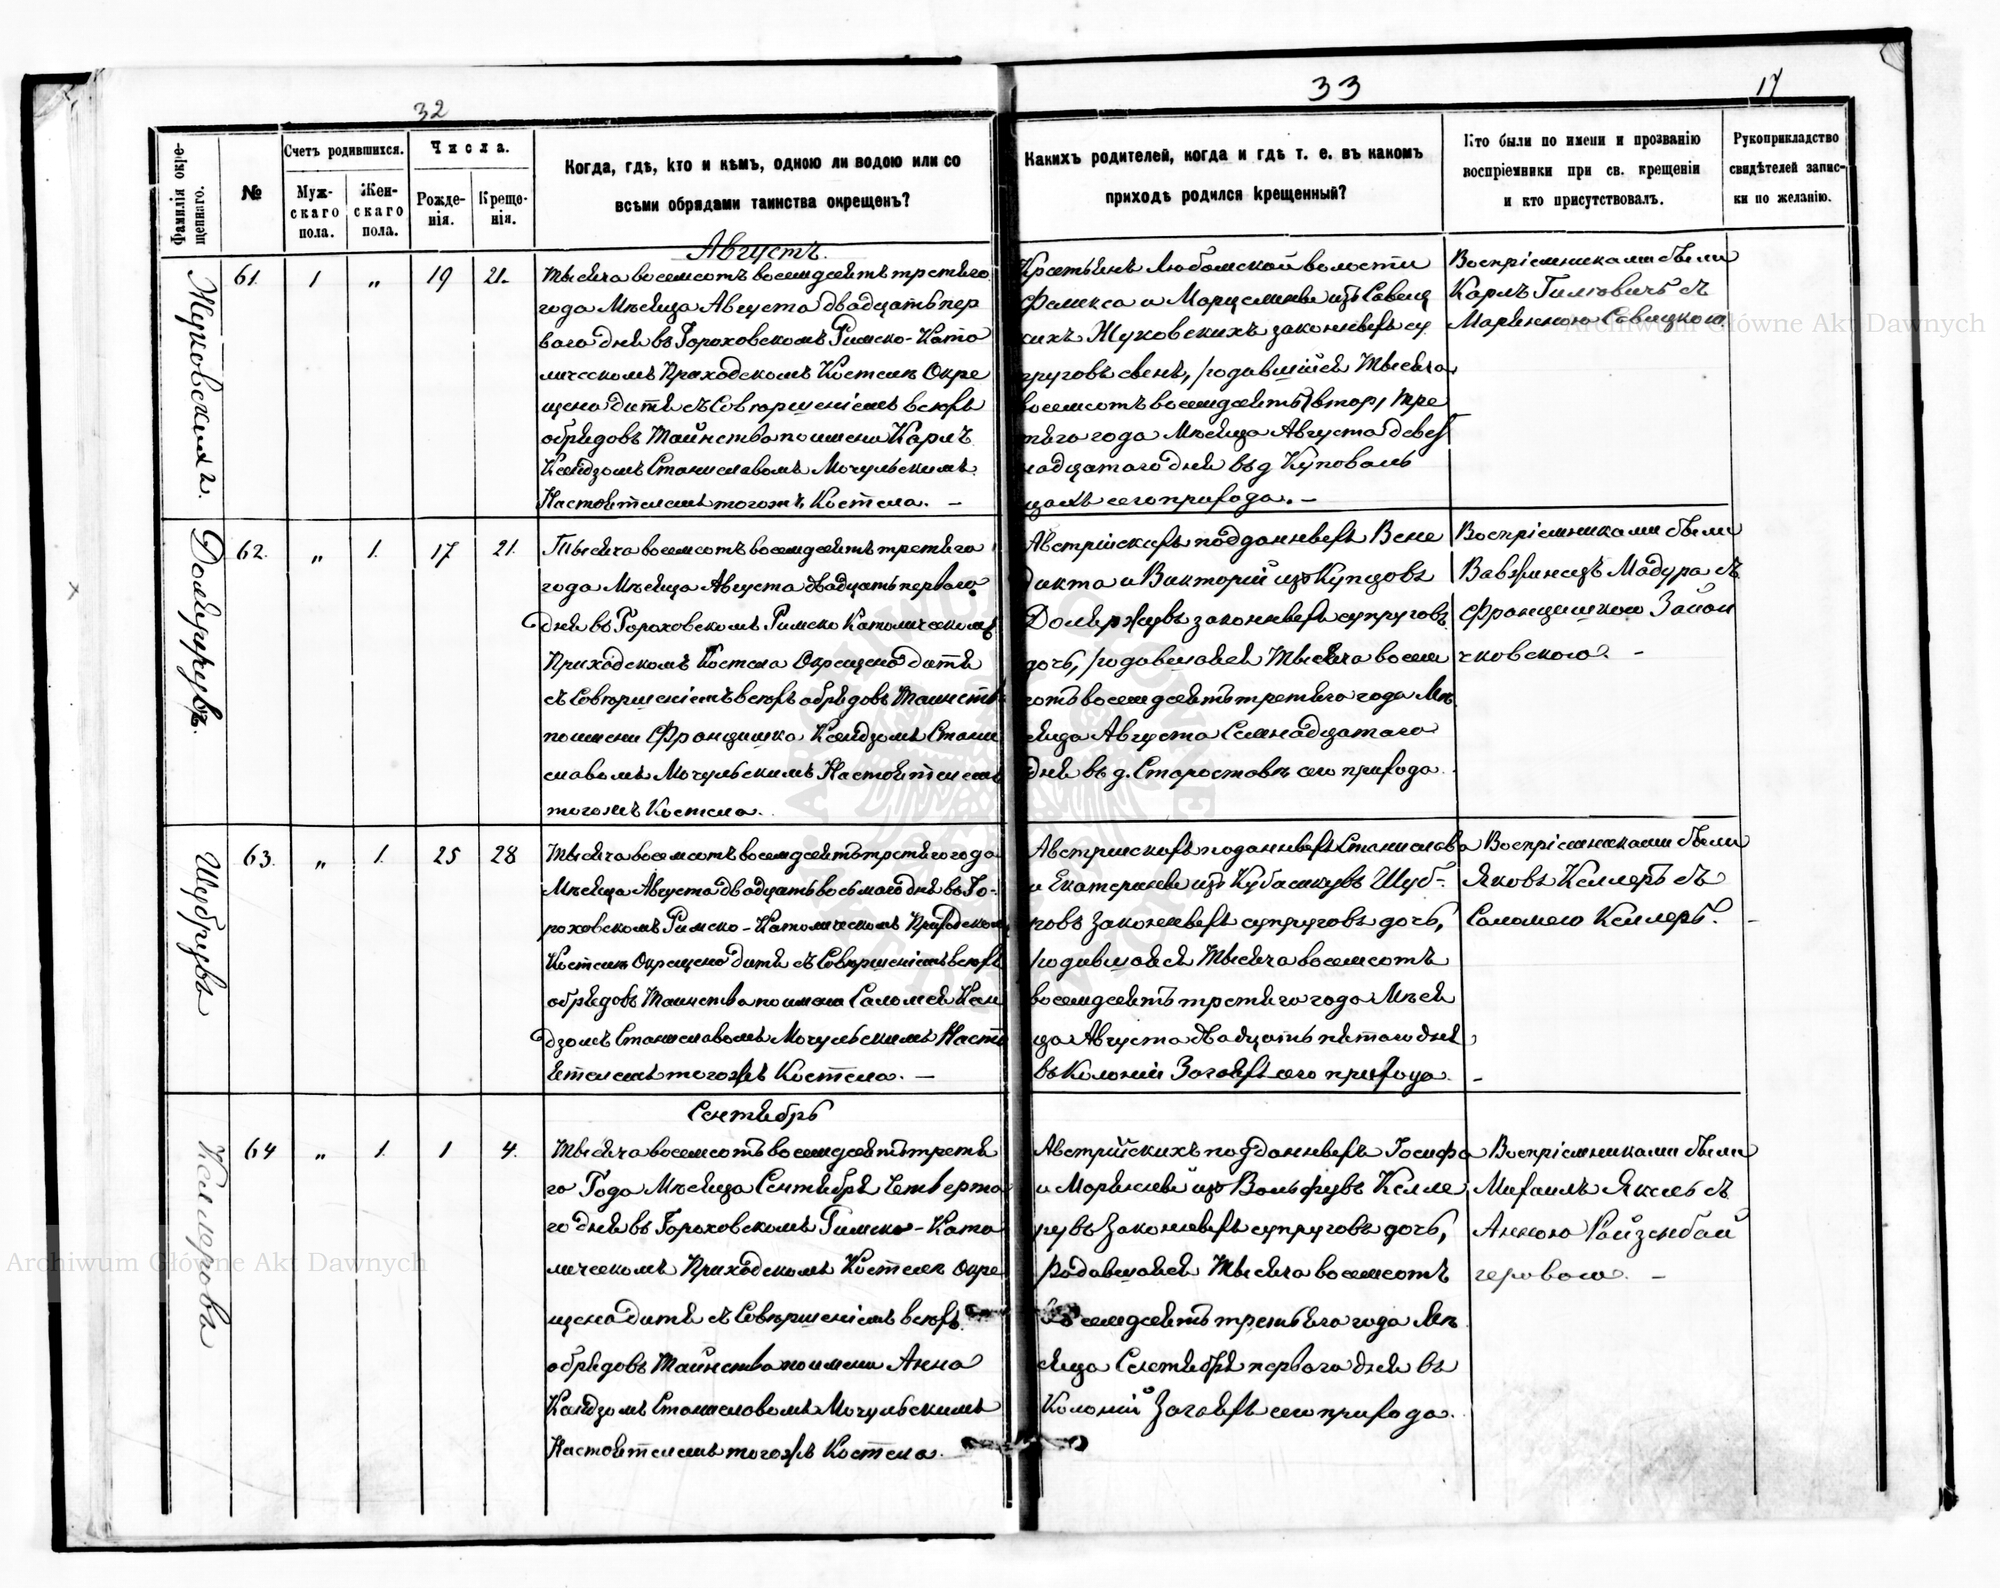 32
33
17
Фамилія окре-
щеннаго.
№
Счетъ родившихся.
Муж-
скаго
пола.
Жен-
скаго
пола.
Числа.
Рожде-
нія.
Креще-
нія.
Когда, гдѣ, кто и кѣмъ, одною ли водою или со
всѣми обрядами таинства окрещенъ?
Какихъ родителей, когда и гдѣ т. е. въ какомъ
приходѣ родился крещенный?
Кто были по имени и прозванію
воспріемники при св. крещеніи
и кто присутствовалъ.
Рукоприкладство
свидѣтелей запис-
ки по желанію.
Августъ.
61.
1
"
19
21.
Тысяча восемсотъ восемдесятъ третяго
года Мѣсяца Августа двадцать пер
ваго дня въ Гороховскомъ Римско-Като
лическомъ Приходскомъ Костелѣ Окре
щено дитя съ Совершеніемъ всѣхъ
обрядовъ Таинства по имени Карлъ
Ксендзомъ Станиславомъ Мочульскимъ
Настоятелемъ тогожъ Костела. —
Крестьянъ Любомской волости
Феликса и Марцелины изъ Савиц
кихъ Жуковскихъ законныхъ су
пруговъ сынъ, родившійся Тысяча
восемсотъ восемдесятъ тре
тяго года Мѣсяца Августа девят
надцатаго дня въ д
цахъ сего прихода. —
Воспріемниками были
Карлъ съ
Маріянною Савицкою
62.
"
1.
17
21.
Тысяча восемсотъ восемдесятъ третяго
года Мѣсяца Августа двадцать перваго
дня въ Гороховскомъ Римско Католическомъ
Приходскомъ Костела Окрещено дитя
съ Совершеніемъ всѣхъ обрядовъ Таинств
по имени Францишка Ксендзомъ Стани
славомъ Мочульскимъ Настоятелемъ
тогожъ Костела.
Австрійскихъ подданныхъ Бене
дикта и Викторіи изъ Купцовъ
законныхъ супруговъ
дочь, родившаяся Тысяча восем
сотъ восемдесятъ третяго года Мѣ
сяца Августа Семнадцатаго
дня въ д. Староставѣ сего прихода.
Воспріемниками были
Вавжинецъ Мадура съ
Францишкою Заіон
чковскою. —
Шубруцъ
63.
"
1.
25
28
Тысяча восемсотъ восемдесятъ третяго года
Мѣсяца Августа двадцать восьмаго дня въ Го-
роховскомъ Римско-Католическомъ Приходском
Костелѣ Окрещено дитя съ Совершеніемъ всѣхъ
обрядовъ Таинства по имени Саломея Ксен
дзомъ Станиславомъ Мочульскимъ Насто
ятелемъ тогожъ Костела. —
Австрійскихъ подданныхъ Станислава
и Екатерины изъ Шуб-
законныхъ супруговъ дочь,
родившаяся Тысяча восемсотъ
восемдесятъ третяго года Мѣся
ца Августа двадцать пятаго дня
въ Колоніи сего прихода.
Воспріемниками были
Яковъ Келлеръ съ
Саломею Келлеръ.
Сентябрь
Келлерова
64
"
1.
1
4.
Тысяча восемсотъ восемдесятъ третя
го Года Мѣсяца Сентября Четверта
го дня въ Гороховскомъ Римско-Като
лическомъ Приходскомъ Костелѣ Окре
щено дитя съ Совершеніемъ всѣхъ
обрядовъ Таинства по имени Анна
Ксендзомъ Станиславомъ Мочульскимъ
Настоятелемъ тогожъ Костела.
Австрійскихъ подданныхъ Іосифа
и Маріянны изъ Вольфувъ Келле
рувъ Законныхъ супруговъ дочь,
Родившаяся Тысяча восемсотъ
Восемдесятъ третьяго года Мѣ
сяца Сентября перваго дня въ
Колоніи сего прихода.
Воспріемниками были
Михаилъ съ
Анною Райзенбай
геровою. —
Archiwum Główne Akt Dawnych
Archiwum Główne Akt Dawnych